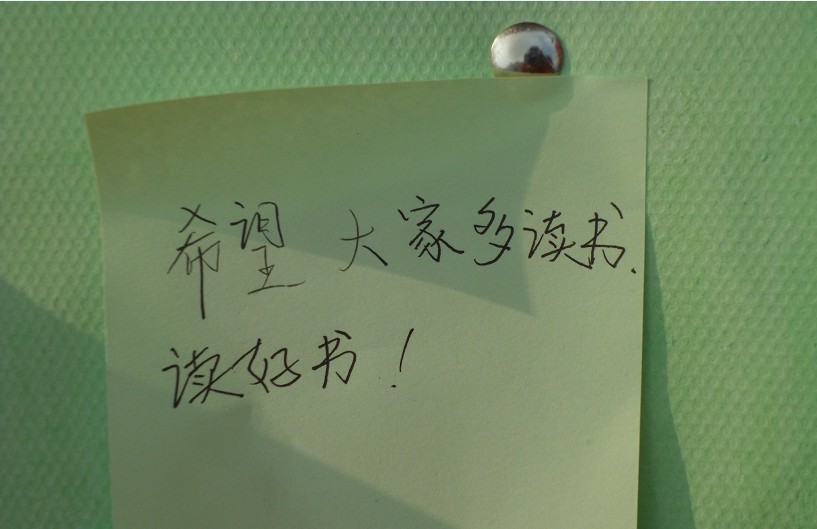 希望大家多读书、
读好书！